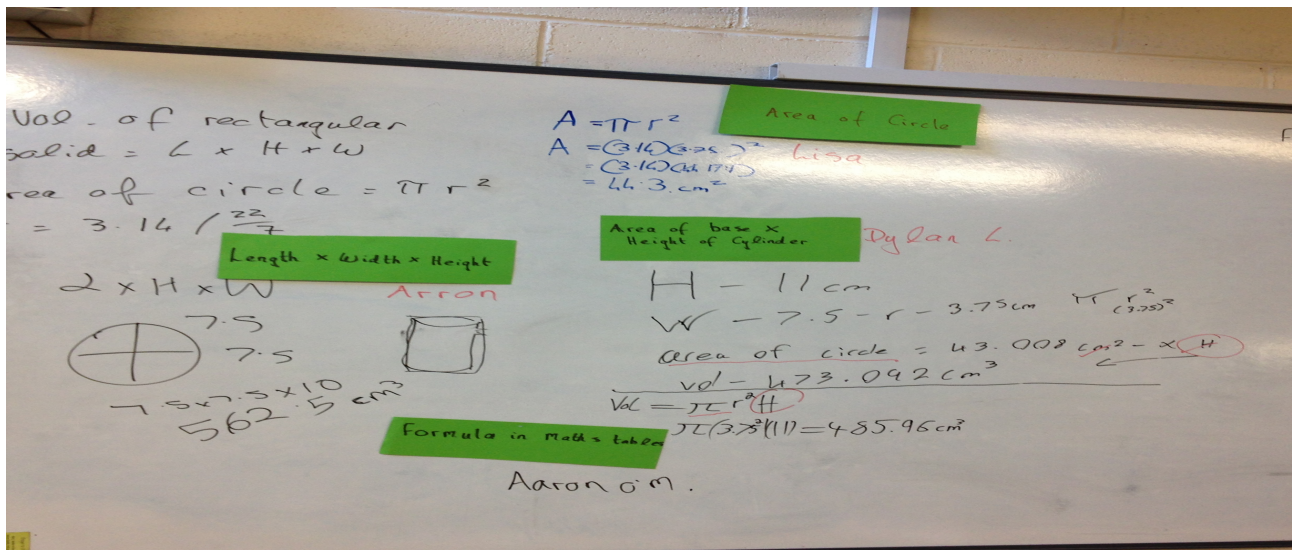 Vol. of rectangular
solid = L x H x W
rea of circle = π r²
= 3.14 / 22/7
Length x Width x Height
2 x H x W
Arron
7.5
7.5
7.5x7.5x10
562.5 cm³
Formula in Maths tables
Aaron O'M.
Area of Circle
A = π r²
A = (3.14)(3.75)²
Lisa
= 44.3.cm²
Area of base x
Height of Cylinder
Dylan L.
H - 11cm
W - 7.5 - r - 3.75cm π r²
(3.75)²
area of circle = 43.008 cm² - x H
vol - 473.092 cm³
Vol = π r² H
π(3.75²)(11) = 485.96cm³